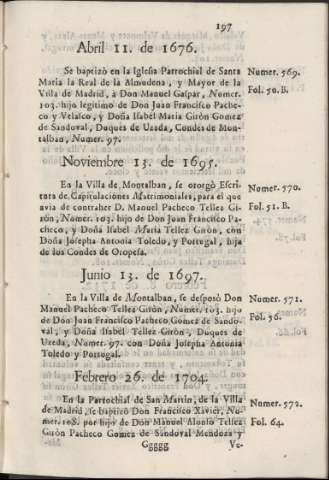 197
Abril 11. de 1676.
Se baptizò en la Iglesia Parrochial de Santa
Maria la Real de la Almudena, y Mayor de la
Villa de Madrid, à Don Manuel Gaspar, Numer.
103. hijo legitimo de Don Juan Francisco Pache-
co y Velasco, y Doña Isabel Maria Giròn Gomez
de Sandoval, Duques de Uzeda, Condes de Mon-
talban, Numer. 97.
Numer. 569.
Fol. 50. B.
Noviembre 13. de 1695.
En la Villa de Montalban, se otorgò Escri-
tura de Capitulaciones Matrimoniales, para el que
avia de contraher D. Manuel Pacheco Tellez Gi-
ròn, Numer. 103. hijo de Don Juan Francisco Pa-
checo, y Doña Isabel Maria Tellez Giròn, con
Doña Josepha Antonia Toledo, y Portugal, hija
de los Condes de Oropesa.
Numer. 570.
Fol. 51. B.
Junio 13. de 1697.
En la Villa de Montalban, se desposò Don
Manuel Pacheco Tellez Giròn, Numer. 103. hijo
de Don Juan Francisco Pacheco Gomez de Sando-
val, y Doña Isabel Tellez Giròn, Duques de
Uzeda, Numer. 97. con Doña Josepha Antonia
Toledo y Portugal.
Numer. 571.
Fol. 56.
Febrero 26. de 1704.
En la Parrochial de San Martin, de la Villa
de Madrid, se baptizò Don Francisco Xavier, Nu-
mer. 108. por hijo de Don Manuel Alonso Tellez
Giròn Pacheco Gomez de Sandoval Mendoza y
Numer. 572.
Fol. 64.
Ggggg
Ve-